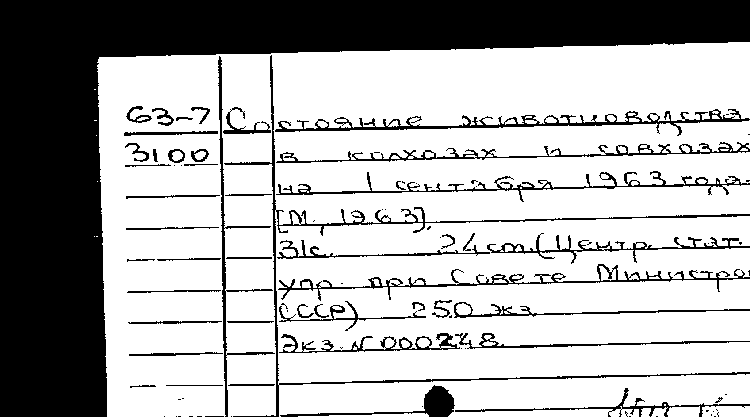 63-7 Состояние животноводства
3100 в колхозах и совхозах
на 1 сентября 1963 года.
[М., 1963].
31с. 24 см. (Центр. стат.
упр. при Совете Министров
СССР) 250 экз.
Экз. N 000248.